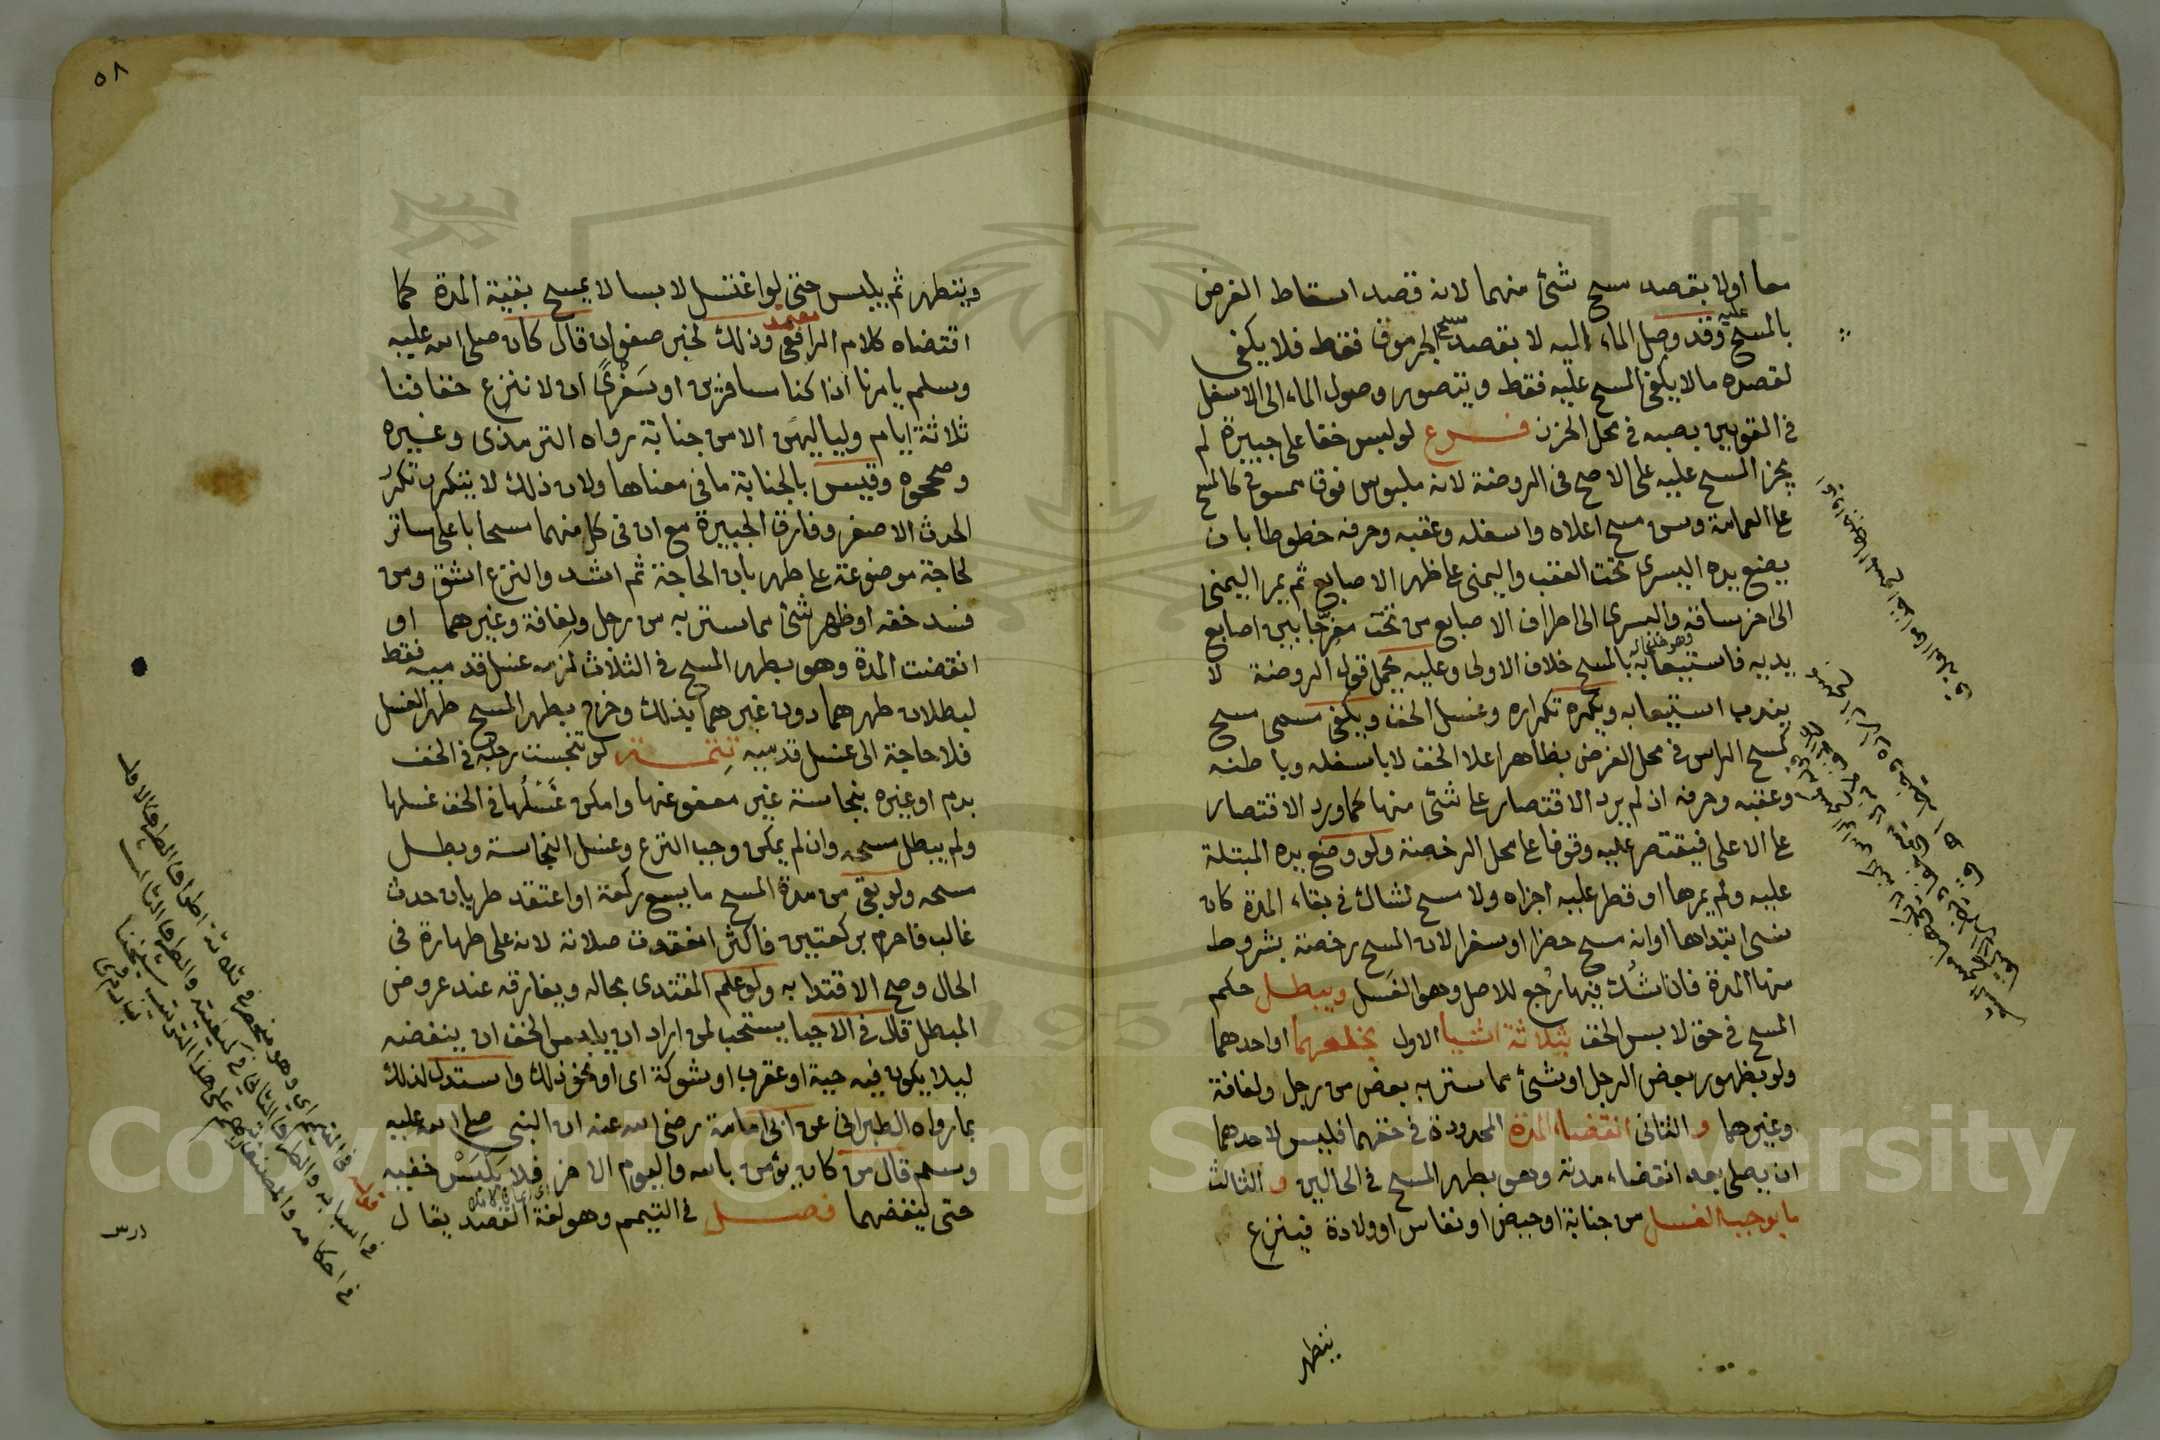 معا اولا بقصد مسح شئ منهما لانه قصد اسقاط الفرض
بالمسح عليه وقد وصل الماء اليه لا بقصد مسح الجرموق فقط فلا يكفى
لقصده ما لا يكفى المسح عليه فقط ويتصور وصول الماء الى الاسفل
فى القويين بصبه فى محل الخرز فرع لو لبس خفا على جبيرة لم
يجز المسح عليه على الاصح فى الروضة لانه ملبوس فوق ممسوح كالمسح
على العمامة وسن مسح اعلاه واسفله وعقبه وحرفه خطوطا بان
يضع يده اليسرى تحت العقب واليمنى على ظهر الاصابع ثم يمر اليمنى
الى اخر ساقه واليسرى الى اطراف الاصابع من تحت مفرجا بين اصابع
يديه فاستيعابه بالمسح خلاف الاولى وعليه يحمل قول الروضة لا
يندب استيعابه ويكره تكراره وغسل الخف ويكفى مسمى مسح
كمسح الراس فى محل الفرض بظاهر اعلا الخف لا باسفله وباطنه
وعقبه وحرفه اذ لم يرد الاقتصار على شئ منها كما ورد الاقتصار
على الاعلى فيقتصر عليه وقوفا على محل الرخصة ولو وضع يده المبتلة
عليه ولم يمرها او قطر عليه اجزاه ولا مسح لشاك فى بقاء المدة كان
نسى ابتداها او انه مسح حضرا او سفرا لان المسح رخصة بشروط
منها المدة فان شك فيها رجع للاصل وهو الغسل ويبطل حكم
المسح فى حق لابس الخف بثلاثة اشيا الاول بخلعهما او احدهما
ولو بظهور بعض الرجل او شئ مما ستر به بعض من رجل ولفافة
وغيرهما و الثانى انقضاء المدة المحدودة فى حقهما فليس لاحدهما
ان يصلى بعد انقضاء مدته وهو بطهر المسح فى الحالين و الثالث
ما يوجب الغسل من جنابة او حيض او نفاس او ولادة فينزع
يتطهر
٥٨
ويتطهر ثم يلبس حتى لو اغتسل لابسا لا يمسح بقية المدة كما
اقتضاه كلام الرافعى معتمد وذلك لخبر صفوان قال كان صلى الله عليه
وسلم يامرنا اذا كنا مسافرين او سَفْرًى ان لا ننزع خفافنا
ثلاثة ايام ولياليهن الا من جنابة رواه الترمذى وغيره
وصححوه وقيس بالجنابة ما فى معناها ولان ذلك لا يتكرر تكرر
الحدث الاصغر وفارق الجبيرة مع ان فى كل منهما مسحا باعلى ساتر
لحاجة موضوعة على طهر بان الحاجة ثم اشد والنزع اشق ومن
فسد خفه او ظهر شئ مما ستر به من رجل ولفافة وغيرهما او
انقضت المدة وهو بطهر المسح فى الثلاث لزمه غسل قدميه فقط
لبطلان طهرهما دون غيرهما بذلك وخرج بطهر المسح طهر الغسل
فلا حاجة الى غسل قدميه تتمة لو تنجست رجله فى الخف
بدم او غيره بنجاسة غير معفو عنها وامكن غَسْلُها فى الخف غسلها
ولم يبطل مسحه وان لم يمكن وجب النزع وغسل النجاسة وبطل
مسحه ولو بقى من مدة المسح ما يسع ركعة او اعتقد طريان حدث
غالب فاحرم بركعتين فاكثر انعقدت صلاته لانه على طهارة فى
الحال وصح الاقتدا به ولو علم المقتدى بحاله ويفارقه عند عروض
المبطل قال فى الاحيا يستحب لمن اراد ان يلبس الخف ان ينفضه
ليلا يكون فيه حية او عقرب او شوكة اى او نحو ذلك واستدل لذلك
بما رواه الطبرانى عن ابى امامة رضى الله عنه ان النبى صلى الله عليه
وسلم قال من كان يؤمن بالله واليوم الاخر فلا يَلْبَسْ خفيه
حتى ينفضهما فصل فى التيمم وهو لغة القصد يقال
قوله فى التيمم اى وهو منحصر فى ثلاثة اطراف الطرف الاول
فى اسبابه والطرف الثانى فى كيفيته والطرف الثالث
فى احكامه
درس